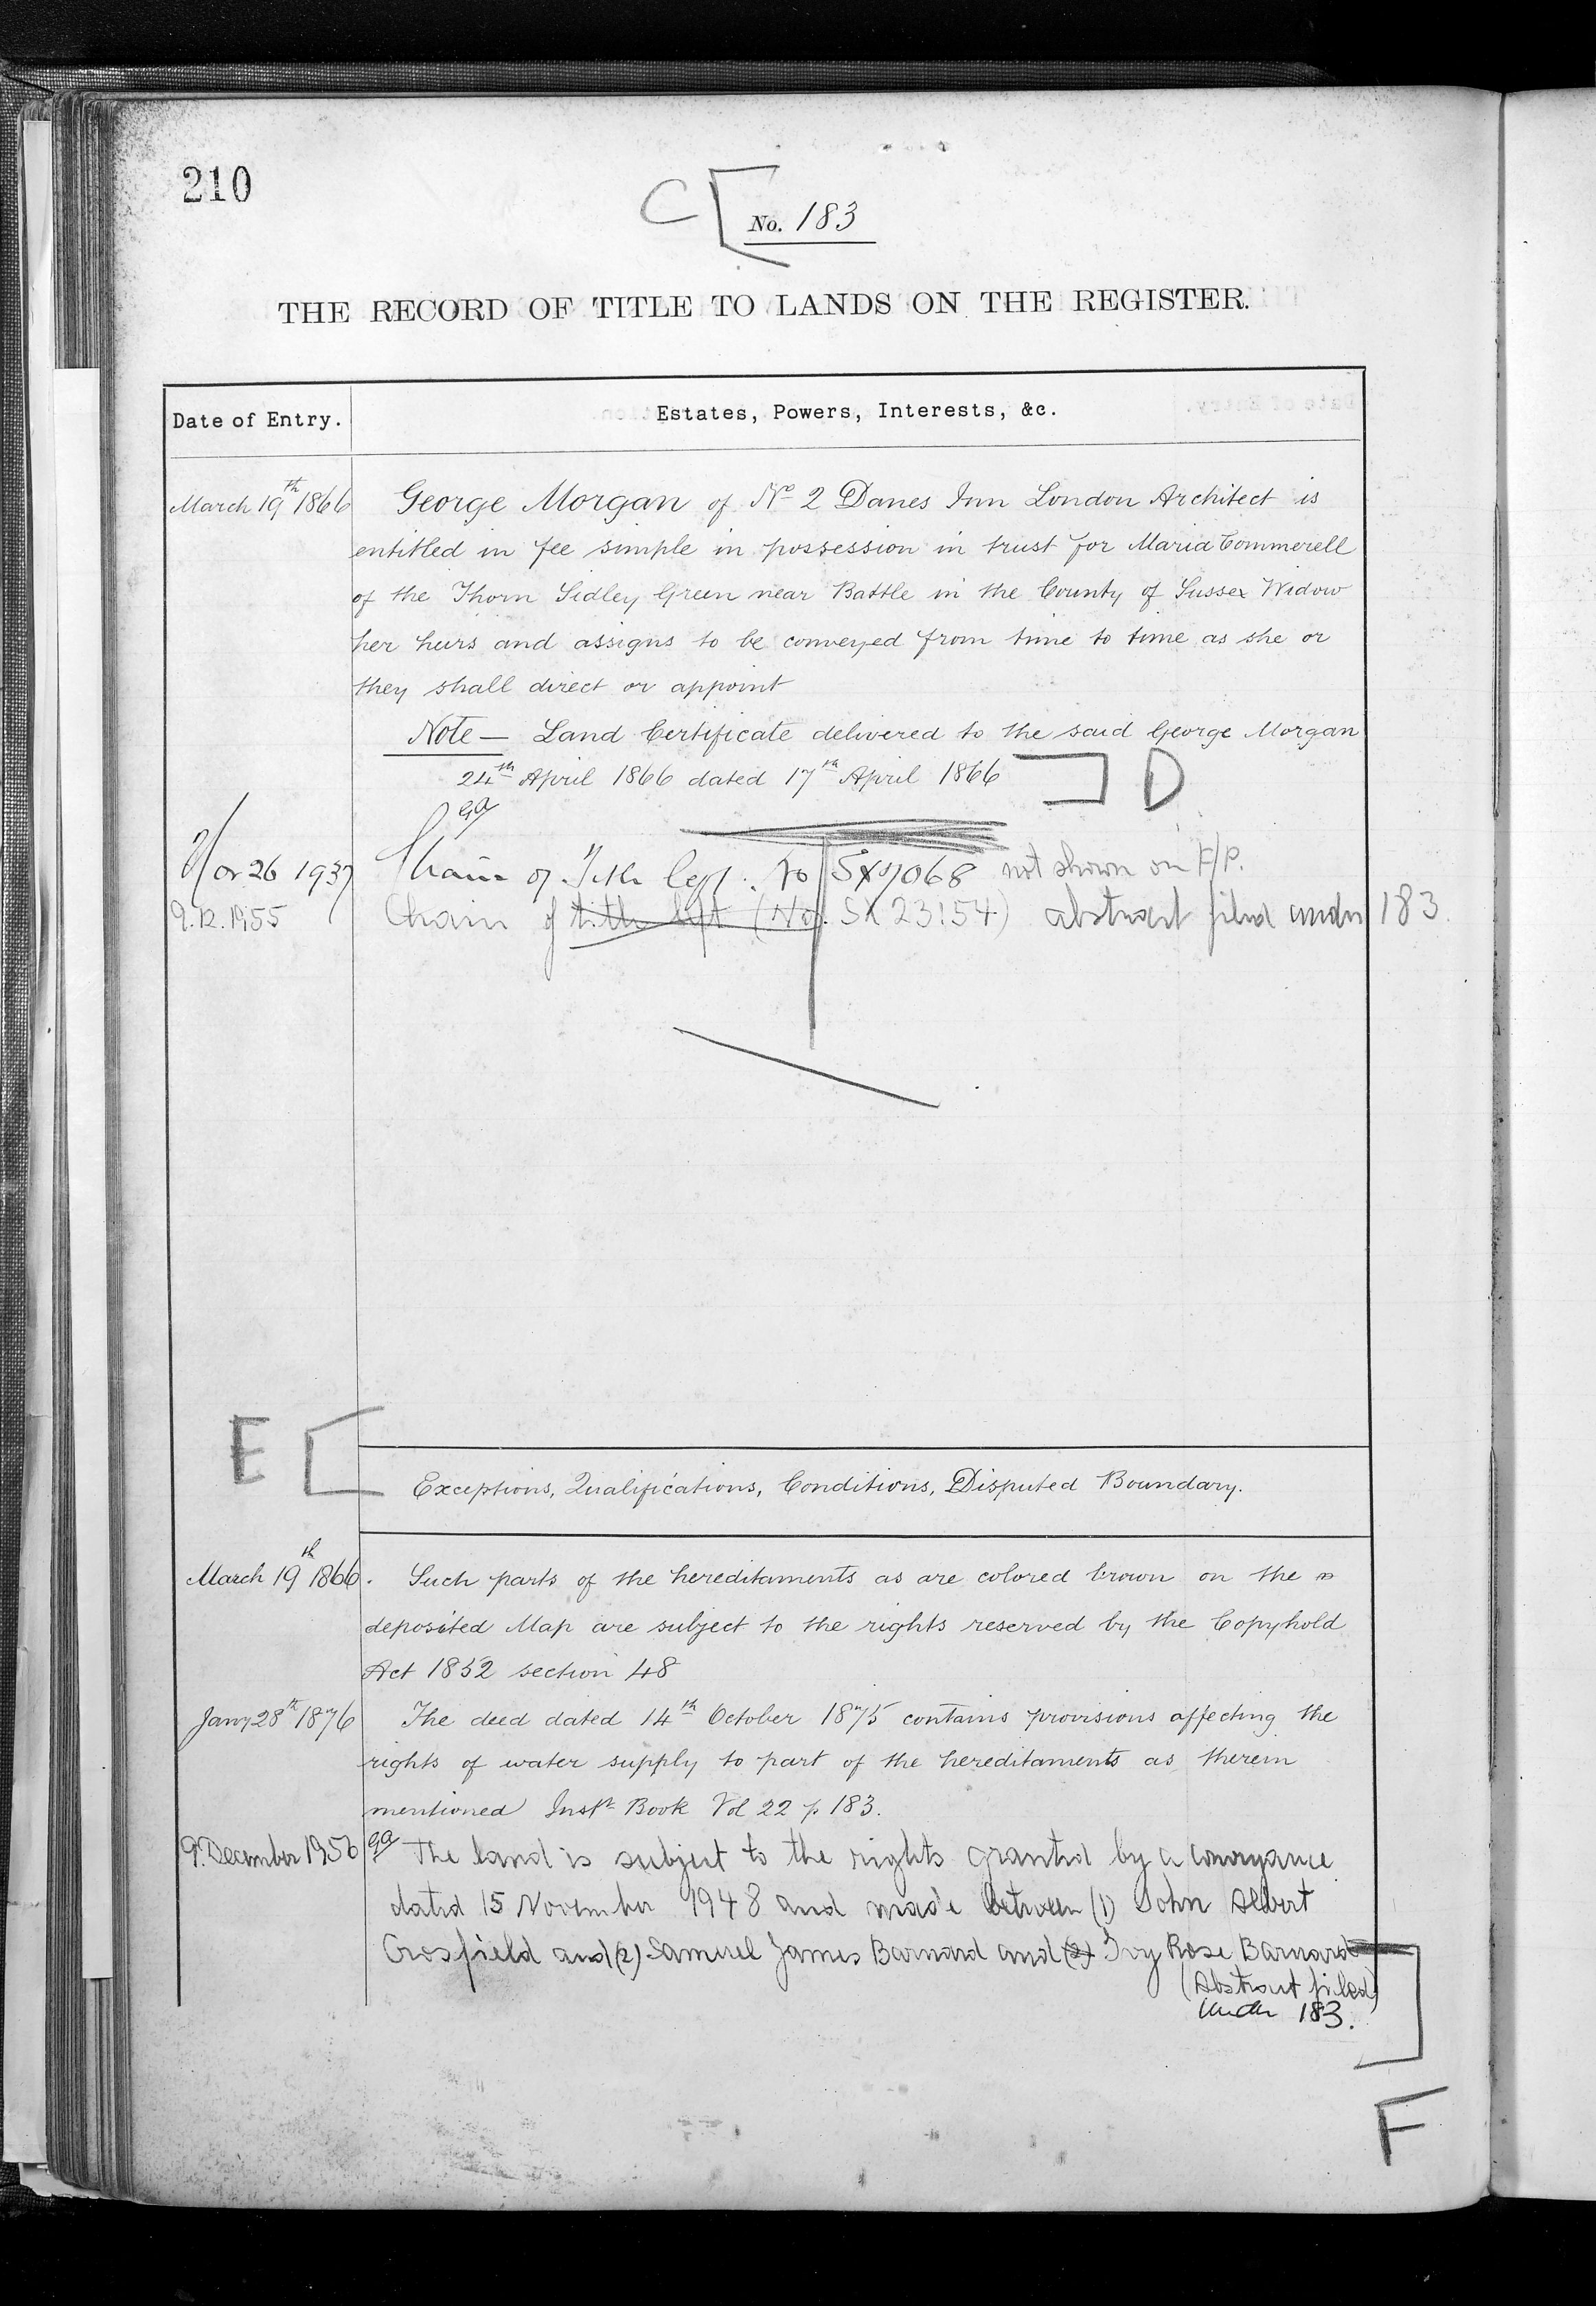 210
C
No. 183
THE RECORD OF TITLE TO LANDS ON THE REGISTER.
Date of Entry.
Estates, Powers, Interests, &c.
March 19th 1866
George Morgan of No 2 Danes Inn London Architect is
entitled in fee simple in possession in trust for Maria Commerell
of the Thorn Sidley Green near Battle in the County of Sussex Widow
her heirs and assigns to be conveyed from time to time as she or
they shall direct or appoint
Note — Land Certificate delivered to the said George Morgan
24th April 1866 dated 17th April 1866
D
Nov 26 1937
Chain of Title left. No SX7068 not shown on F/P.
9.12.1955
Chain of title left (No. SX 23154) abstract filed under 183.
E
Exceptions, Qualifications, Conditions, Disputed Boundary.
March 19th 1866.
Such parts of the hereditaments as are colored brown on the
deposited Map are subject to the rights reserved by the Copyhold
Act 1852 section 48
Jany 28th 1876
The deed dated 14th October 1875 contains provisions affecting the
rights of water supply to part of the hereditaments as therein
mentioned Instt Book Vol 22 p 183.
9. December 1956
The land is subject to the rights granted by a conveyance
dated 15 November 1948 and made between (1) John Albert
Crosfield and (2) Samuel James Barnard and Ivy Rose Barnard
(Abstract filed
under 183.
F